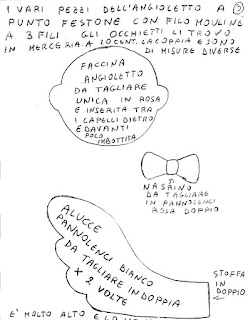 I VARI PEZZI DELL'ANGIOLETTO A
PUNTO FESTONE CON FILO MOULINE
A 3 FILI GLI OCCHIETTI LI TROVO
IN MERCERIA. A 20 CENT. LA COPPIA E SONO
DI MISURE DIVERSE
FACCINA
ANGIOLETTO
DA TAGLIARE
UNICA IN ROSA
E INSERITA TRA
I CAPELLI DIETRO
E DAVANTI
POCO
IMBOTTITA
NASRINO
DA TAGLIARE
IN PANNOLENCI
ROSA DOPPIO
ALUCCE
PANNOLENCI BIANCO
DA TAGLIARE IN DOPPIA
X 2 VOLTE
STOFFA
IN
DOPPIO
E' MOLTO ALTO E